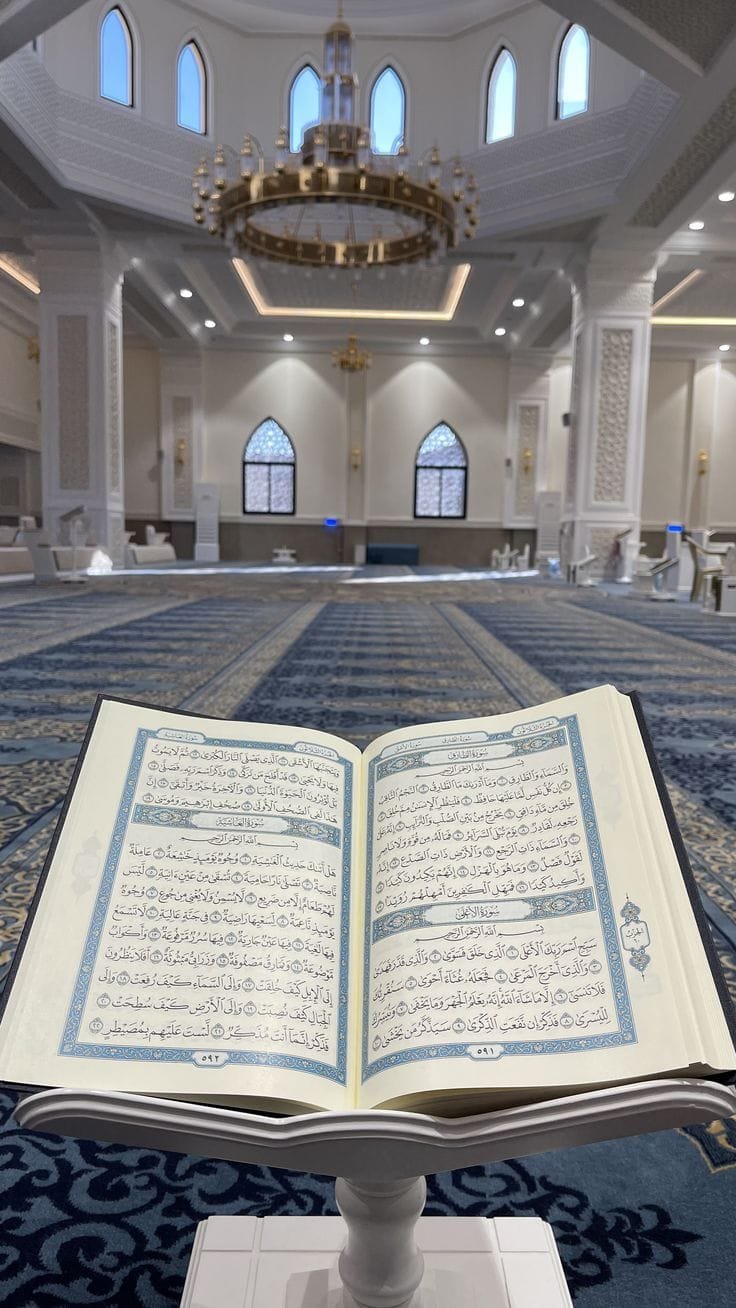 الجزء الثلاثون سورة الطارق سورة الأعلى
سُورَةُ الطَّارِقِ
بِسْمِ اللَّهِ الرَّحْمَٰنِ الرَّحِيمِ
وَالسَّمَاءِ وَالطَّارِقِ ١ وَمَا أَدْرَىٰكَ مَا الطَّارِقُ ٢ النَّجْمُ الثَّاقِبُ
٣ إِن كُلُّ نَفْسٍ لَّمَّا عَلَيْهَا حَافِظٌ ٤ فَلْيَنظُرِ الْإِنسَٰنُ مِمَّ خُلِقَ ٥
خُلِقَ مِن مَّاءٍ دَافِقٍ ٦ يَخْرُجُ مِن بَيْنِ الصُّلْبِ وَالتَّرَائِبِ ٧ إِنَّهُ عَلَىٰ
رَجْعِهِ لَقَادِرٌ ٨ يَوْمَ تُبْلَى السَّرَائِرُ ٩ فَمَا لَهُ مِن قُوَّةٍ وَلَا نَاصِرٍ
١٠ وَالسَّمَاءِ ذَاتِ الرَّجْعِ ١١ وَالْأَرْضِ ذَاتِ الصَّدْعِ ١٢ إِنَّهُ
لَقَوْلٌ فَصْلٌ ١٣ وَمَا هُوَ بِالْهَزْلِ ١٤ إِنَّهُمْ يَكِيدُونَ كَيْدًا ١٥
وَأَكِيدُ كَيْدًا ١٦ فَمَهِّلِ الْكَٰفِرِينَ أَمْهِلْهُمْ رُوَيْدًا ١٧
سُورَةُ الْأَعْلَىٰ
بِسْمِ اللَّهِ الرَّحْمَٰنِ الرَّحِيمِ
سَبِّحِ اسْمَ رَبِّكَ الْأَعْلَى ١ الَّذِي خَلَقَ فَسَوَّىٰ ٢ وَالَّذِي قَدَّرَ فَهَدَىٰ
٣ وَالَّذِي أَخْرَجَ الْمَرْعَىٰ ٤ فَجَعَلَهُ غُثَاءً أَحْوَىٰ ٥ سَنُقْرِئُكَ
فَلَا تَنسَىٰ ٦ إِلَّا مَا شَاءَ اللَّهُ إِنَّهُ يَعْلَمُ الْجَهْرَ وَمَا يَخْفَىٰ ٧ وَنُيَسِّرُكَ
لِلْيُسْرَىٰ ٨ فَذَكِّرْ إِن نَّفَعَتِ الذِّكْرَىٰ ٩ سَيَذَّكَّرُ مَن يَخْشَىٰ ١٠
٥٩١
الجزء الثلاثون سورة الغاشية
وَيَتَجَنَّبُهَا الْأَشْقَى ١١ الَّذِي يَصْلَى النَّارَ الْكُبْرَىٰ ١٢ ثُمَّ لَا يَمُوتُ
فِيهَا وَلَا يَحْيَىٰ ١٣ قَدْ أَفْلَحَ مَن تَزَكَّىٰ ١٤ وَذَكَرَ اسْمَ رَبِّهِ فَصَلَّىٰ ١٥
بَلْ تُؤْثِرُونَ الْحَيَوٰةَ الدُّنْيَا ١٦ وَالْآخِرَةُ خَيْرٌ وَأَبْقَىٰ ١٧ إِنَّ
هَٰذَا لَفِي الصُّحُفِ الْأُولَىٰ ١٨ صُحُفِ إِبْرَٰهِيمَ وَمُوسَىٰ ١٩
سُورَةُ الْغَاشِيَةِ
بِسْمِ اللَّهِ الرَّحْمَٰنِ الرَّحِيمِ
هَلْ أَتَىٰكَ حَدِيثُ الْغَٰشِيَةِ ١ وُجُوهٌ يَوْمَئِذٍ خَٰشِعَةٌ ٢ عَامِلَةٌ
نَّاصِبَةٌ ٣ تَصْلَىٰ نَارًا حَامِيَةً ٤ تُسْقَىٰ مِنْ عَيْنٍ ءَانِيَةٍ ٥ لَّيْسَ
لَهُمْ طَعَامٌ إِلَّا مِن ضَرِيعٍ ٦ لَّا يُسْمِنُ وَلَا يُغْنِي مِن جُوعٍ ٧ وُجُوهٌ
يَوْمَئِذٍ نَّاعِمَةٌ ٨ لِّسَعْيِهَا رَاضِيَةٌ ٩ فِي جَنَّةٍ عَالِيَةٍ ١٠ لَّا تَسْمَعُ
فِيهَا لَٰغِيَةً ١١ فِيهَا عَيْنٌ جَارِيَةٌ ١٢ فِيهَا سُرُرٌ مَّرْفُوعَةٌ ١٣ وَأَكْوَابٌ
مَّوْضُوعَةٌ ١٤ وَنَمَارِقُ مَصْفُوفَةٌ ١٥ وَزَرَابِيُّ مَبْثُوثَةٌ ١٦ أَفَلَا يَنظُرُونَ
إِلَى الْإِبِلِ كَيْفَ خُلِقَتْ ١٧ وَإِلَى السَّمَاءِ كَيْفَ رُفِعَتْ ١٨ وَإِلَى
الْجِبَالِ كَيْفَ نُصِبَتْ ١٩ وَإِلَى الْأَرْضِ كَيْفَ سُطِحَتْ ٢٠
فَذَكِّرْ إِنَّمَا أَنتَ مُذَكِّرٌ ٢١ لَّسْتَ عَلَيْهِم بِمُصَيْطِرٍ ٢٢
٥٩٢